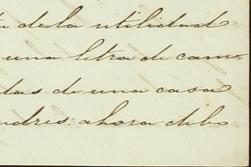 de la utilidad
una letra de cam
das de una casa
ndres: ahora debo